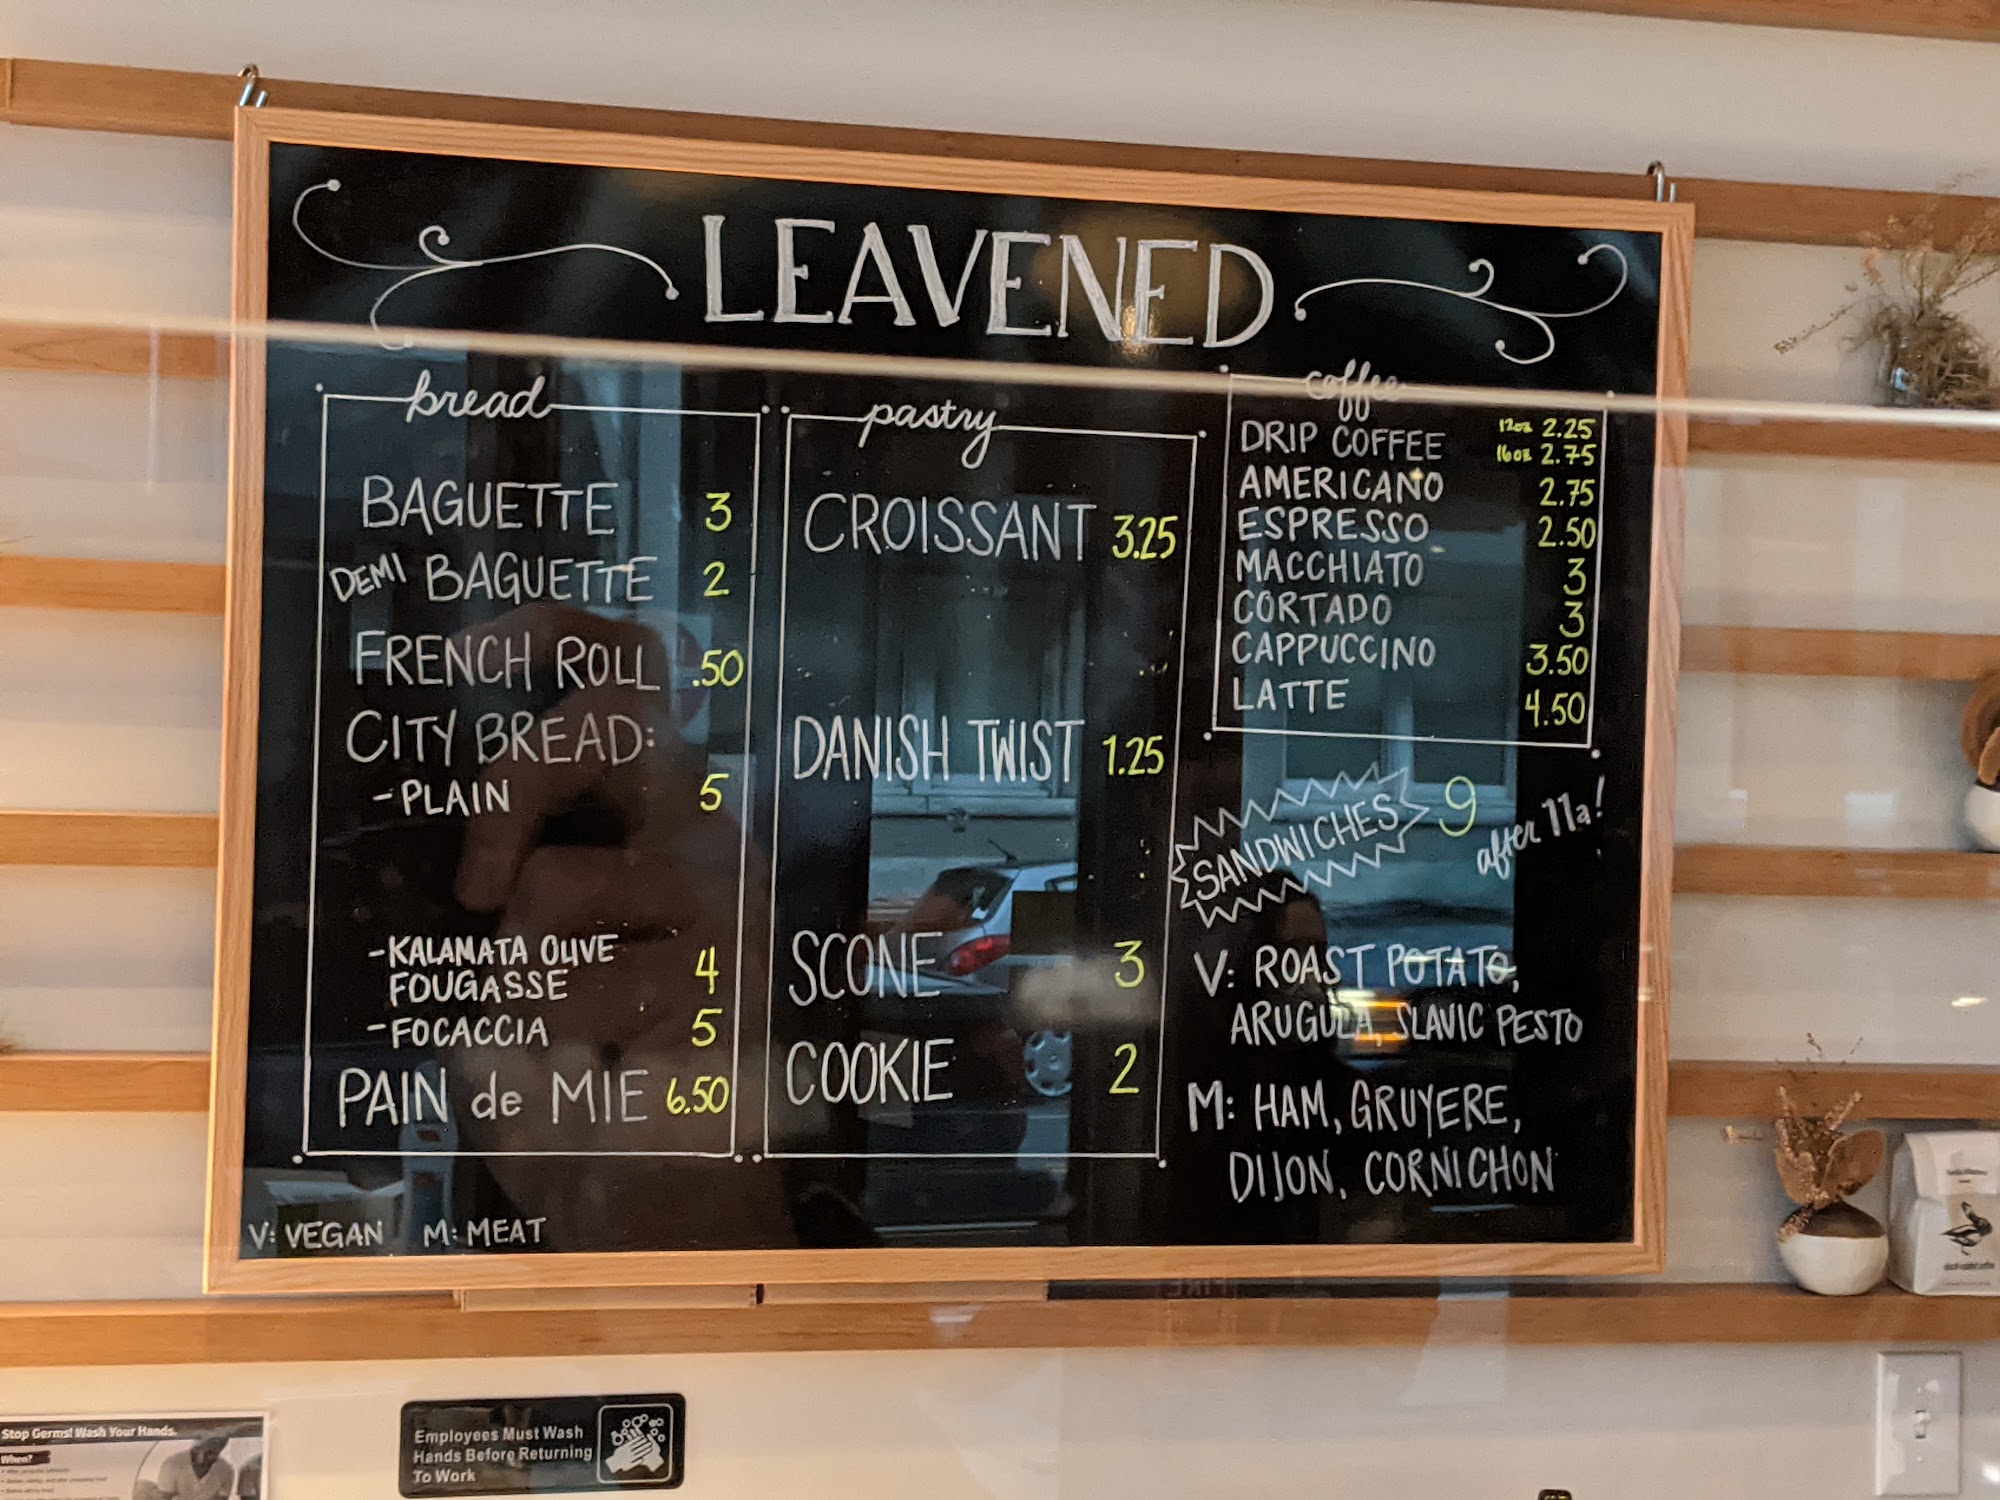 LEAVENED
bread
BAGUETTE 3
DEMI BAGUETTE 2
FRENCH ROLL .50
CITY BREAD:
-PLAIN 5
-KALAMATA OLIVE
FOUGASSE 4
-FOCACCIA 5
PAIN de MIE 6.50
pastry
CROISSANT 3.25
DANISH TWIST 1.25
SCONE 3
COOKIE 2
coffee
DRIP COFFEE 12oz 2.25
16oz 2.75
AMERICANO 2.75
ESPRESSO 2.50
MACCHIATO 3
CORTADO 3
CAPPUCCINO 3.50
LATTE 4.50
SANDWICHES 9 after 11a!
V: ROAST POTATO,
ARUGULA, SLAVIC PESTO
M: HAM, GRUYERE,
DIJON, CORNICHON
V: VEGAN M: MEAT
Stop Germs! Wash Your Hands.
When?
Employees Must Wash
Hands Before Returning
To Work